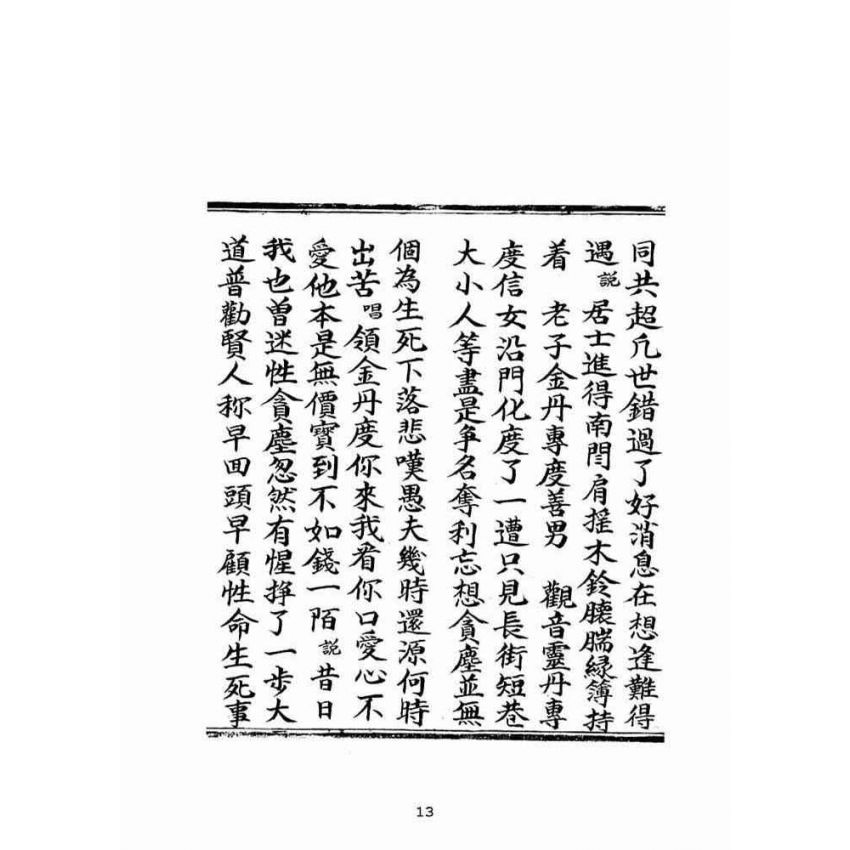 同共超凢世錯過了好消息在想逢難得
遇說居士進得南門肩摇木鈴臕腨緑簿持
着　老子金丹專度善男　觀音靈丹專
度信女沿門化度了一遭只見長街短巷
大小人等盡是争名奪利忘想貪塵並無
個為生死下落悲嘆愚夫幾時還源何時
出苦唱領金丹度你來我看你口愛心不
愛他本是無價寶到不如錢一陌說昔日
我也曽迷性貪塵忽然有惺挣了一步大
道普勸賢人称早回頭早顧性命生死事
13